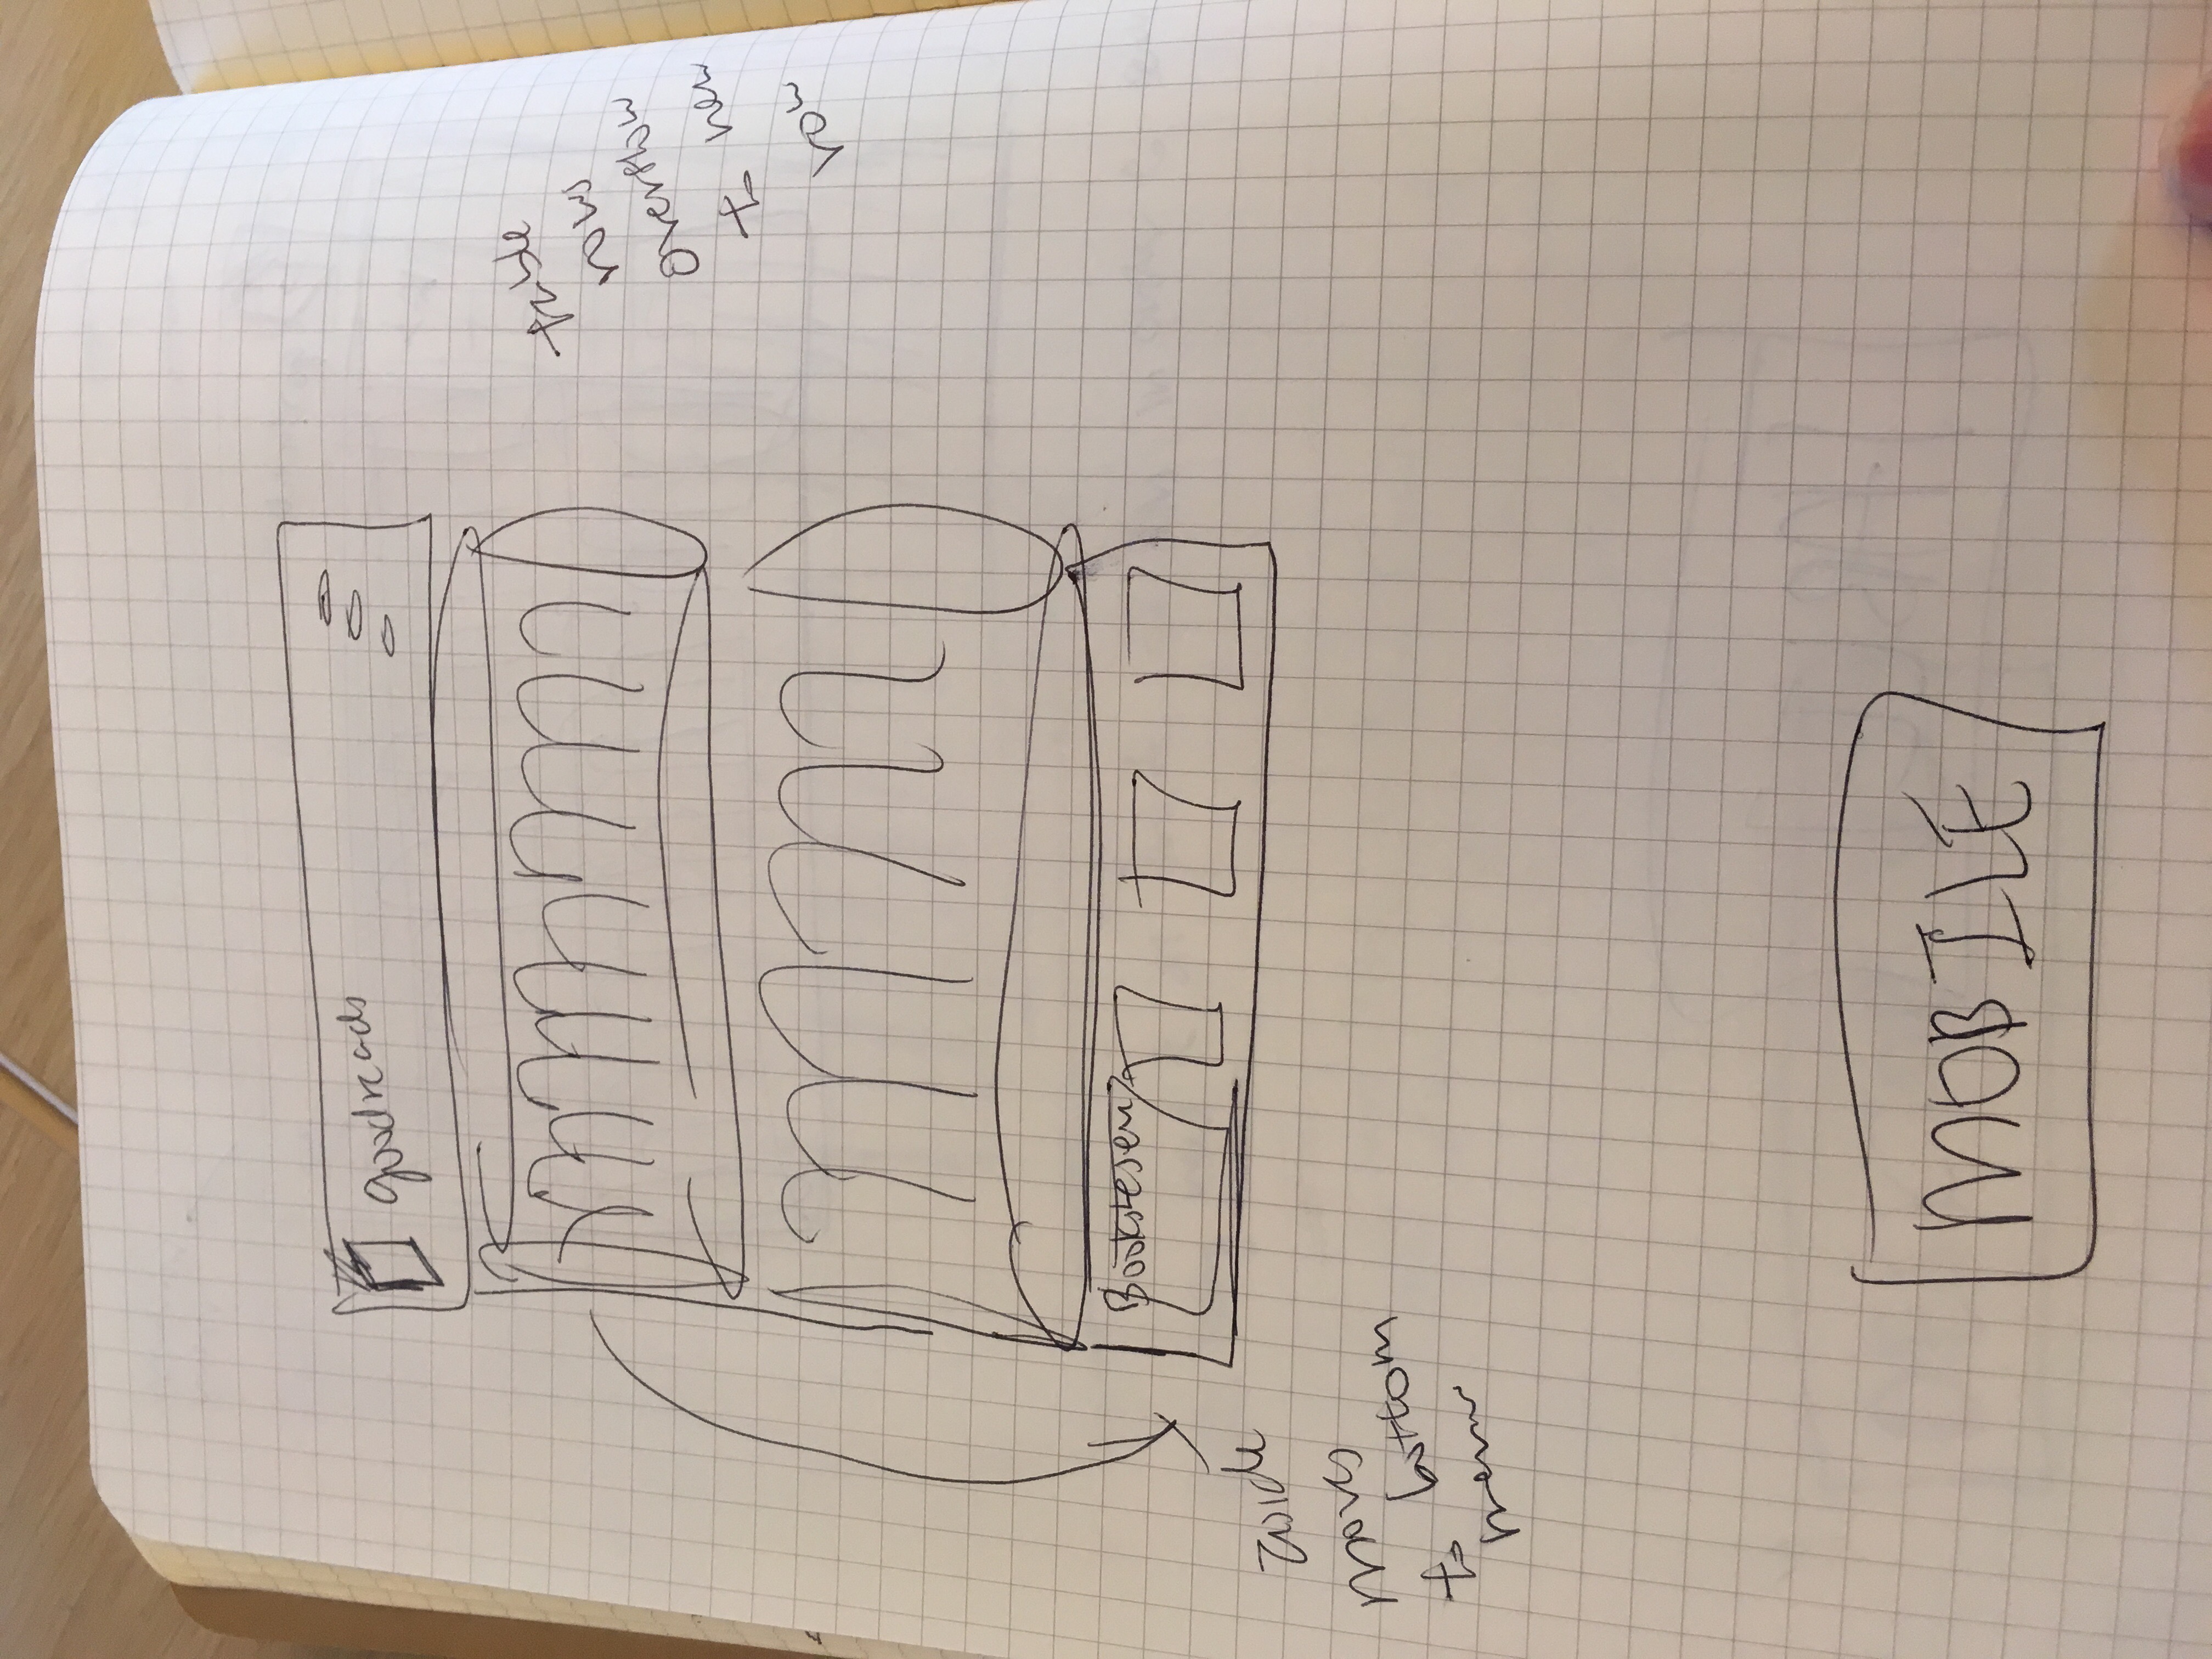 goodreads
table
rows
overflow
to new
row
aside
moves
to bottom
menu
MOBILE